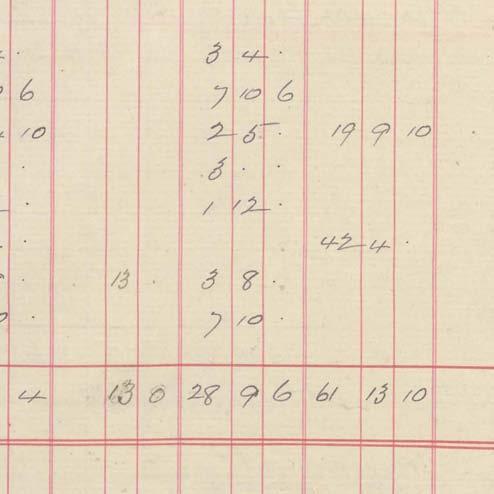 3 4 .
6 7 10 6
10 2 5 . 19 9 10
. 3 . .
. 1 12 .
. 42 4 .
. 13 . 3 8 .
. 7 10 .
4 13 0 28 9 6 61 13 10